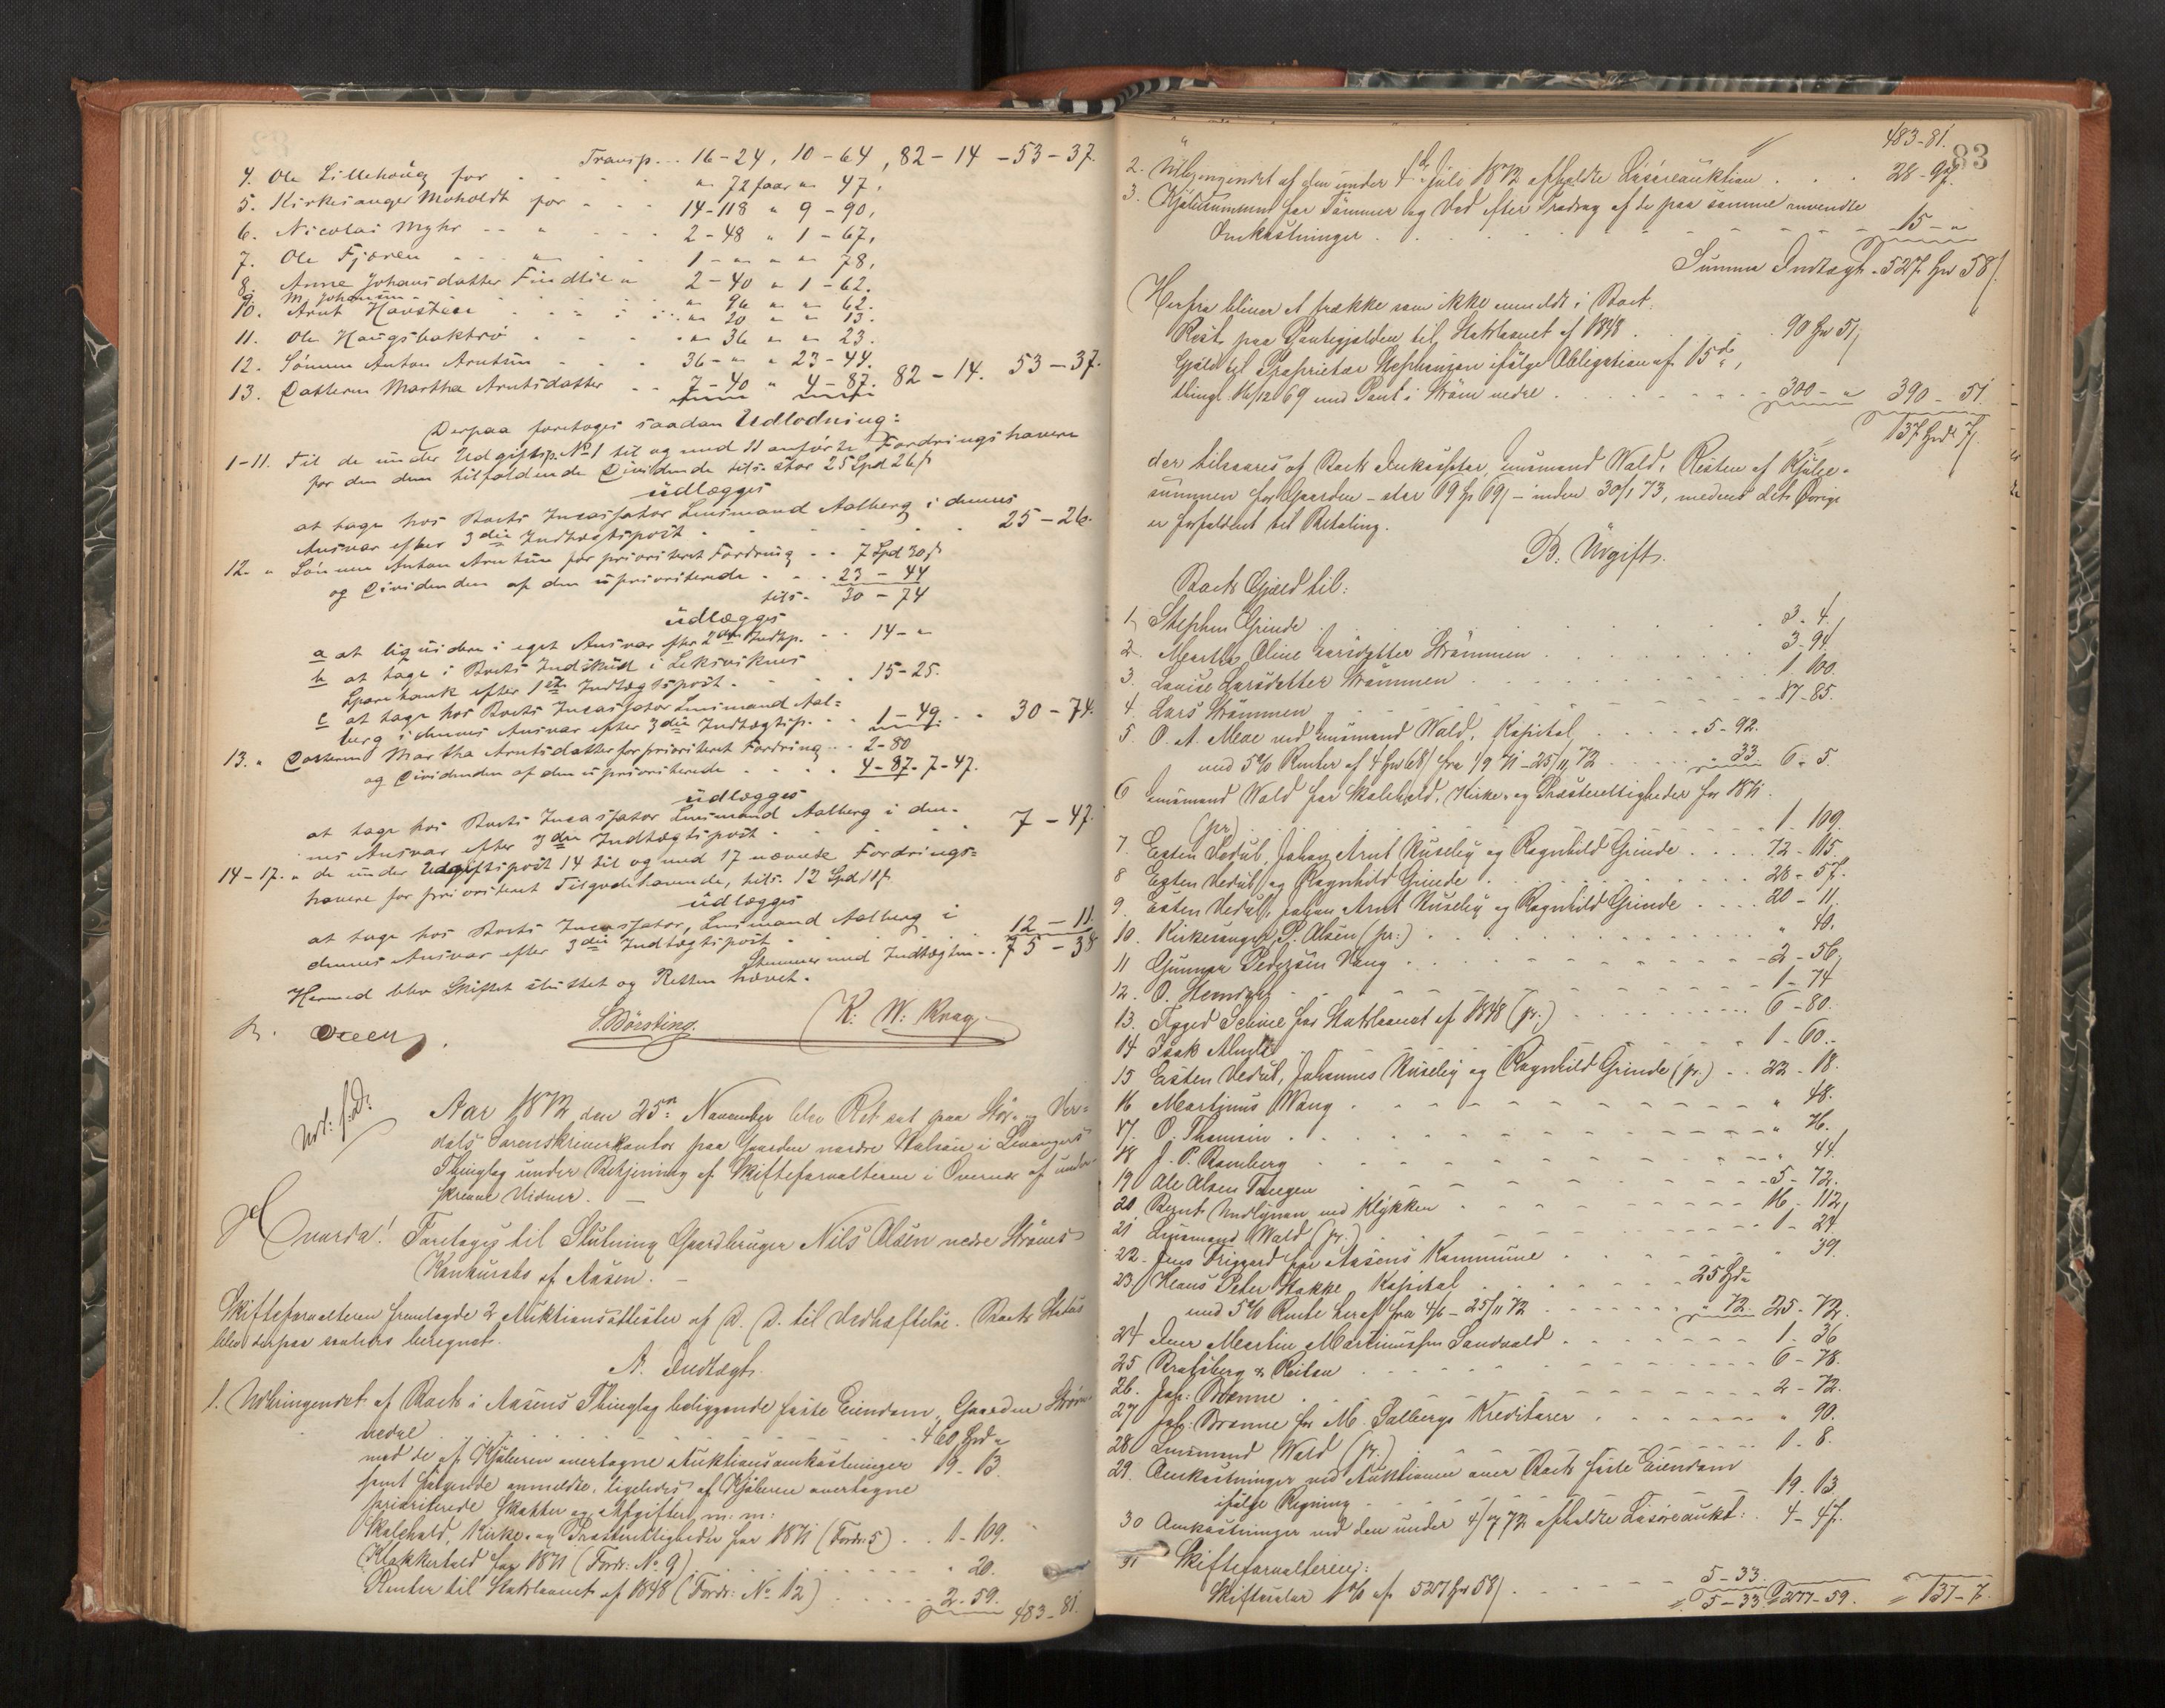 Transp. . . 16-24, 10-64, 82-14 - 53-37.
4. Ole Lillehoug for . . . . " 72 faar " 47,
5. Kirkesanger Moholdt for - . . 14-118 " 9-90,
6. Nicolai Myhr - - " . . . 2-48 " 1-67,
7. Ole Fjæren - . . " . . 1 - " " " 78,
8. Anne Johansdatter Findlie " 2-40 " 1-62.
9. M. Johansen . . . . " 96 " " 62.
10. Arnt Hovsteen . . . . " 20 " " 13.
11. Ole Haugsbaktrø . . . " 36 " " 23.
12. Sønnen Anton Arntsen . . 36-" " 23-44.
13. Datteren Martha Arntsdatter . . 7-40 " 4-87. 82-14. 53-37.
Derpaa foretoges saadan Udlodning:
1-11. Til de under Udgiftsp. No 1 til og med 11 anførte Fordringshavere
for den dem tilfaldende Dividende tils. stor 25 Spd 26 ß
udlægges
at tage hos Boets Incassator Lensmand Aalberg i dennes
Ansvar efter 3die Indtægtspost . . . . . 25-26.
12. " Sønnen Anton Arntsen for prioriteret Fordring . . 7 Spd 30 ß
og Dividenden af den upriorterede . . . 23-44
tils. 30-74
udlægges
a at liqvidere i eget Ansvar efter 2den Indtp. . . 14-"
b at tage i Boets Indskud i Leksvikens
Sparebank efter 1ste Indtægtspost . . . . 15-25.
c at tage hos Boets Incassator Lensmand Aal=
berg i dennes Ansvar efter 3die Indtægtsp. . . 1-49. . . 30-74.
13. " Datteren Martha Arntsdatter for prioriteret Fordring . . 2-80
og Dividenden af den upriorterede . . . . 4-87. 7-47.
udlægges
at tage hos Boets Incassator Lensmand Aalberg i den-
nes Ansvar efter 3die Indtægtspost . . . . . 7-47.
14-17. " de under Udgiftspost 14 til og med 17 nævnte Fordrings=
havere for prioriteret Tilgodehavende, tils. 12 Spd 11 ß
udlægges
at tage hos Boets Incassator, Lensmand Aalberg i
dennes Ansvar efter 3die Indtægtspost . . . . 12-11.
Stemmer med Indtægten . . 75-38
Hermed blev Skiftet sluttet og Retten hævet.
S. Børsting. K. W. Krag.
Aar 1872 den 25de November blev Ret sat paa Stør- og Ver=
dals Sorenskriverkontor paa Gaarden nordre Halsan i Levangers
Thinglag under Betjening af Skifteforvalteren i Overvær af under
skrevne Vidner. —
Hvorda! Foretoges til Slutning Gaardbruger Nils Olsen nedre Strøms
Konkursbo af Aasen. —
Skifteforvalteren fremlagde 2 Auktionsattester af D. D. til Vedhæftelse. Boets Status
blev derpaa saaledes beregnet.
A. Indtægt.
1. Udbringendet af Boets i Aasens Thinglag beliggende faste Eiendom, Gaarden Strøm
nedre . . . . . . . . 460 Spd "
med de af Kjøberen overtagne Auktionsomkostninger 19-13.
samt følgende anmeldte, ligeledes af Kjøberen overtagne
prioriterede Skatter og Afgifter m: m:
Skolehold, Kirke- og Præsterettigheder for 1871 (Fordr: 5) . . 1-109.
Klokkertold for 1871 (Fordr: No 9) . . . . . " 20.
Renter til Statslaanet af 1848 (Fordr: No 12) . . . . 2-59. 483-81.
83
483-81.
2. Udbringendet af den under 4de Juli 1872 afholdte Løsøreauktion . . . 28-97.
3. Kjøbesummen for Tømmer og Ved efter Fradrag af de paa samme anvendte
Omkostninger . . . . . . . . 15-"
Summa Indtægt . 527 Spd 58 ß
Herfra bliver at trække som ikke anmeldt i Boet.
Rest paa Pantegjelden til Statslaanet af 1848 . . . 90 Spd 51 ß
Gjæld til Proprietær Stephansen ifølge Obligation af 15de,
thingl. 16/12 69 med Pant i Strøm nedre . . . . . 300-" 390-51.
137 Spd 7 ß
der tilsvares af Boets Inkassator, Lensmand Wold, Resten af Kjøbe-
summen for Gaarden - stor 69 Sp 69 ß - inden 30/1 73, medens det Øvrige
er forfaldent til Betaling.
B. Udgift.
Boets Gjæld til:
1, Stephen Grinde . . . . . . 3-4.
2. Martha Oline Larsdatter Strømmen . . . . 3-94.
3. Lovise Larsdatter Strømmen . . . . . 1-100.
4. Lars Strømmen . . . . . . 17-85.
5 O. A. Moe ved Lensmand Wold, Kapital . . . 5-92.
med 5% Renter af 4 Spd 68 ß fra 1/9 71-25/11 72 . . " 33. 6-5.
6 Lensmand Wold for Skolehold, Kirke- og Præsterettigheder for 1871.
(pr.) . . . . . . . . 1-109.
7. Esten Vedul, Johan Arnt Huseby og Ragnhild Grinde . . . 72-115
8 Esten Vedul og Ragnhild Grinde . . . . 28-57.
9. Esten Vedul, Johan Arnt Huseby og Ragnhild Grinde . . . 20-11.
10. Kirkesanger P. Olsen (pr:) . . . . . " 40.
11 Gunnar Pedersen Vang . . . . . 2-56,
12. O. . . . . . . 1-74
13. Foged Schive for Statslaanet af 1848 (pr.) . . . 6-80.
14 Isak . . . . . . 1-60.
15 Esten Vedul, Johannes Huseby og Ragnhild Grinde (pr.) . . 22-18.
16 Martinus Wang . . . . . . " 48.
17. O. Thomsen . . . . . . " 76.
18 J. P. Ramberg . . . . . . " 44.
19 Ole Olsen Tangen . . . . . 5-72.
20 Bernt ved Kløkken . . . . 16-112,
21 Lensmand Wold (pr.) . . . . . 1-24
22. Jens Trygged for Aasens Kommune . . . . " 39.
23 Klaus Peter Hakke Kapital . . . . 25 Spd "
med 5% Rente heraf fra 4/6-25/11 72 . . . " 72. 25-72.
24 Iver Martin Martinussen Sandvold . . . . 1-36
25 Bratsberg & Reitan . . . . . 6-78.
26. Joh: Brønne . . . . . . 2-72.
27 Joh: Brønne for M. Salbergs Kreditorer . . . . " 90.
28 Lensmand Wold (pr.) . . . . . 1-8.
29. Omkostninger ved Auktionen over Boets faste Eiendom
ifølge Regning . . . . . . 19-13.
30 Omkostninger ved den under 4/7 72 afholdte Løsøreaukt: . 4-47.
31 Skifteforvalteren:
Skiftesalær 1% af 527 Spd 58 ß . . . . 5-33.
" 5-33. 277-59. " 137-7.